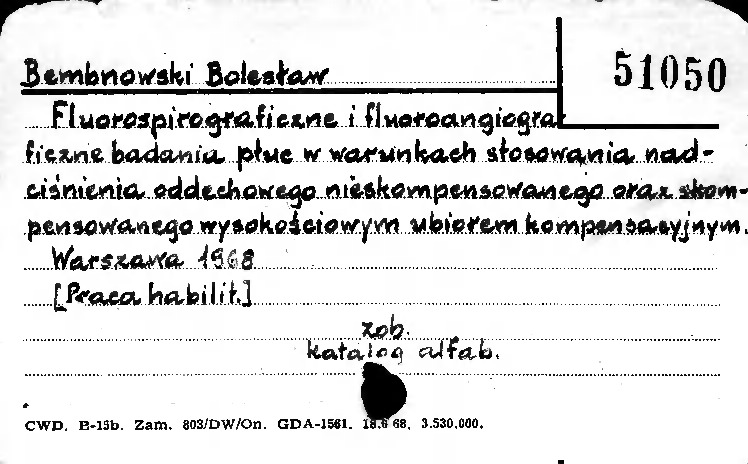 Bembnowski Bolesław
51050
Fluorospirograficzne i fluoroangiogra
ficzne badania płuc w warunkach stosowania nad-
ciśnienia oddechowego nieskompensowanego oraz skom-
pensowanego wysokościowym ubiorem kompensacyjnym.
Warszawa 1968
[Praca habilit.]
zob.
katalog alfab.
CWD. B-15b. Zam. 803/DW/On. GDA-1561. 18.6 68. 3.530.000.